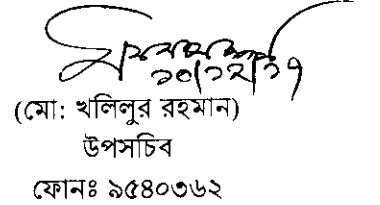 (মো: খলিলুর রহমান)
উপসচিব
ফোনঃ ৯৫৪০৩৬২